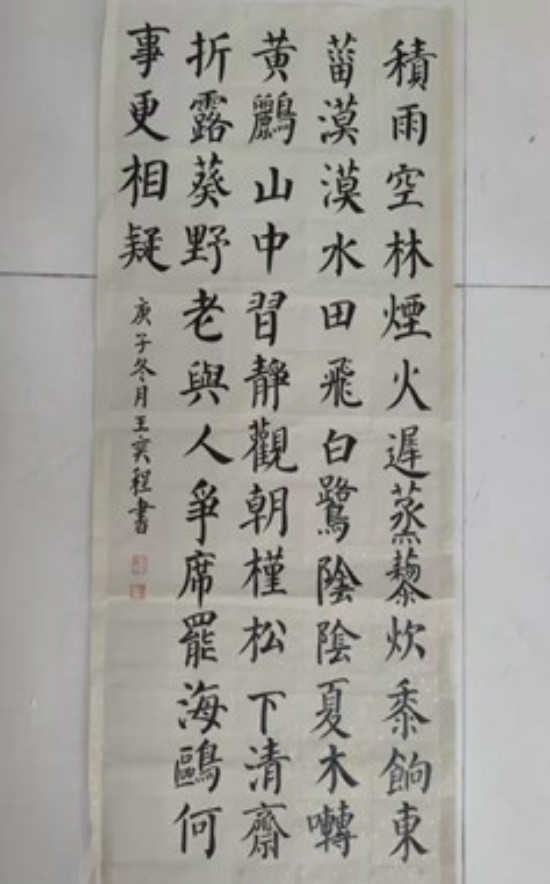 積雨空林煙火遲蒸藜炊黍餉東
菑漠漠水田飛白鷺陰陰夏木囀
黃鸝山中習靜觀朝槿松下清齋
折露葵野老與人爭席罷海鷗何
事更相疑
庚子冬月王奕程書